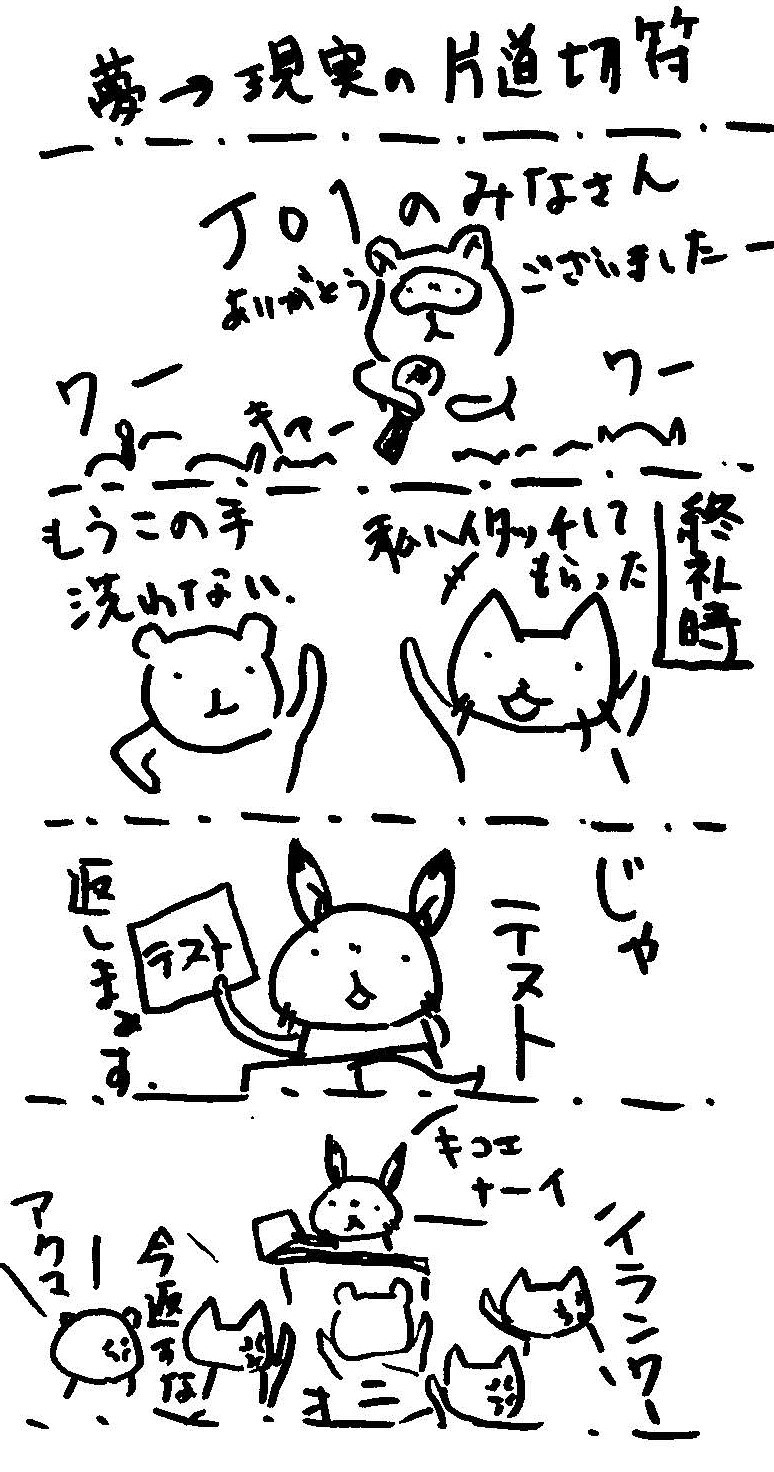 夢→現実の片道切符
JO1のみなさん
ありがとうございましたー
ワー
キャー
ワー
終礼時
私ハイタッチして
もらった
もうこの手
洗わない.
じゃ
テスト
テスト
返しまぁす.
キコエ
ナーイ
イランワー
オニ
今返すな
アクマ